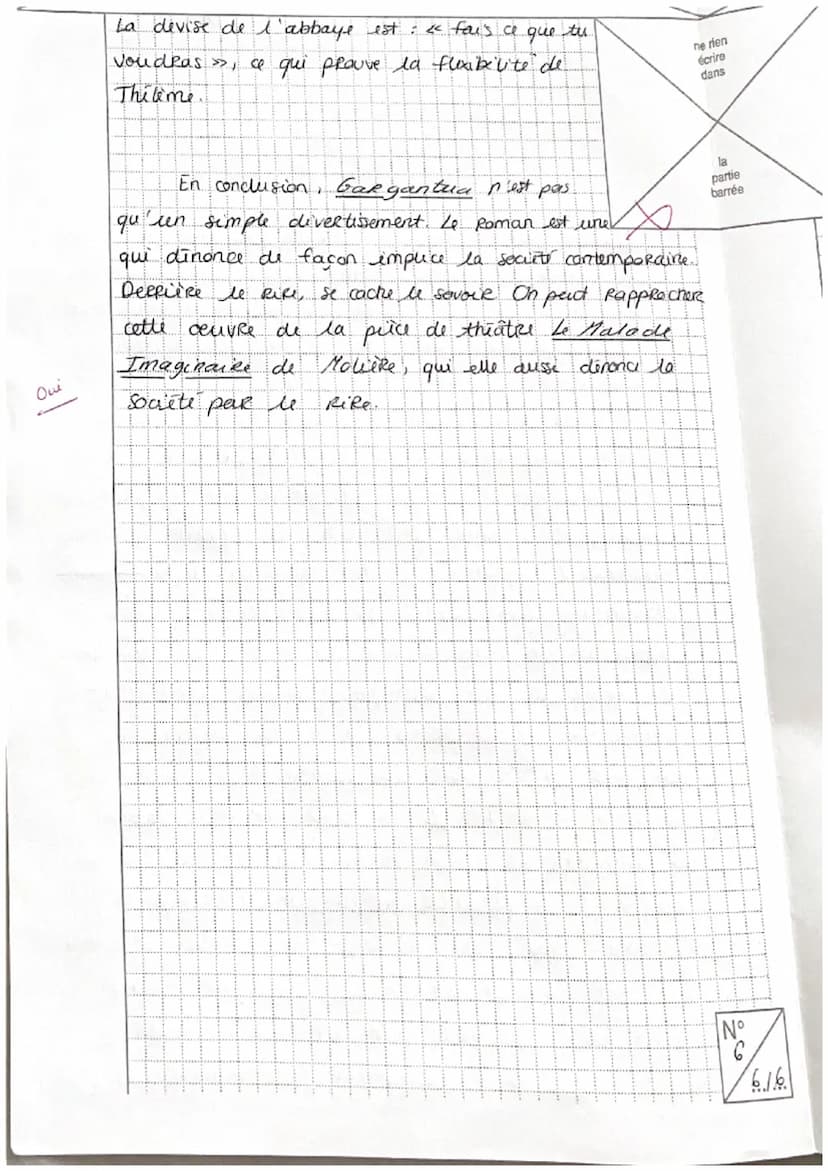 La devise de l'abbaye est : « fais ce que tu
voudras », ce qui prouve la flexibilité de
Thélème.
ne rien
écrire
dans
la
partie
barrée
En conclusion, Gargantua n'est pas
qu'un simple divertisement. Le Roman est une
qui dénonce de façon implice la société contemporaine.
Derrière le rire, se cache le savoir On peut Rapprocher
cette oeuvre de la pièce de théâtre Le Malade
Imaginaire de Molière, qui elle aussi dénonce la
Oui
société par le rire.
N°
6
6/6